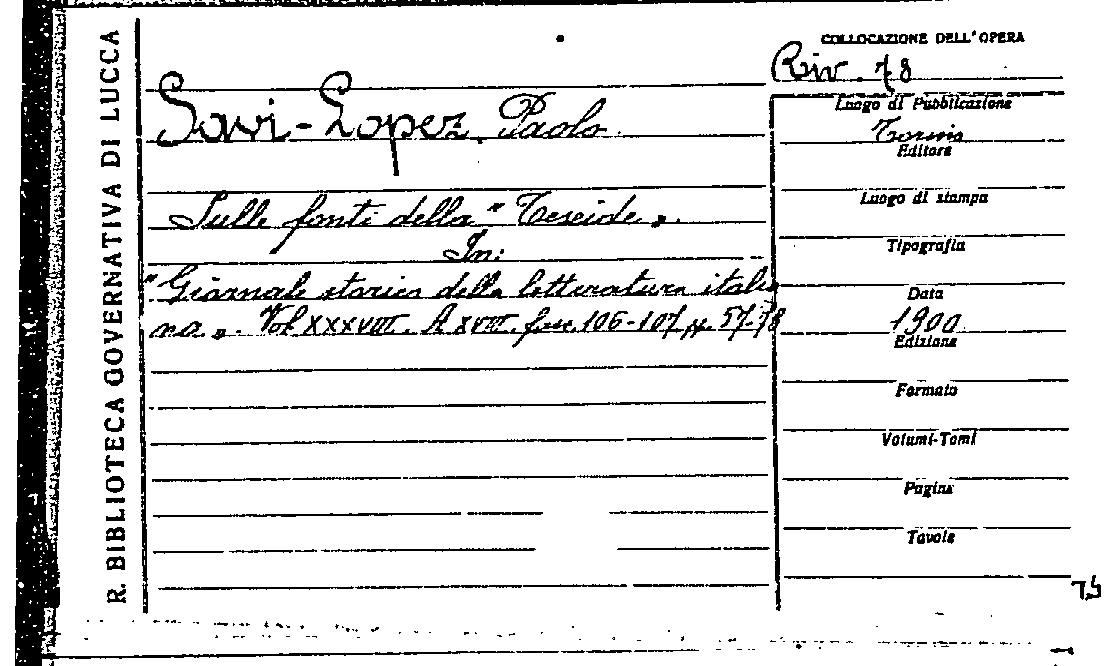 R. BIBLIOTECA GOVERNATIVA DI LUCCA
COLLOCAZIONE DELL'OPERA
Riv. 78
Savi-Lopez, Paolo.
Sulle fonti della "Teseide".
In:
"Giornale storico della letteratura italia
na". Vol XXXVIII. A XVIII. fasc. 106-107 pp. 57-78
Luogo di Pubblicazione
Torino
Editore
Luogo di stampa
Tipografia
Data
1900
Edizione
Formato
Volumi-Tomi
Pagine
Tavole